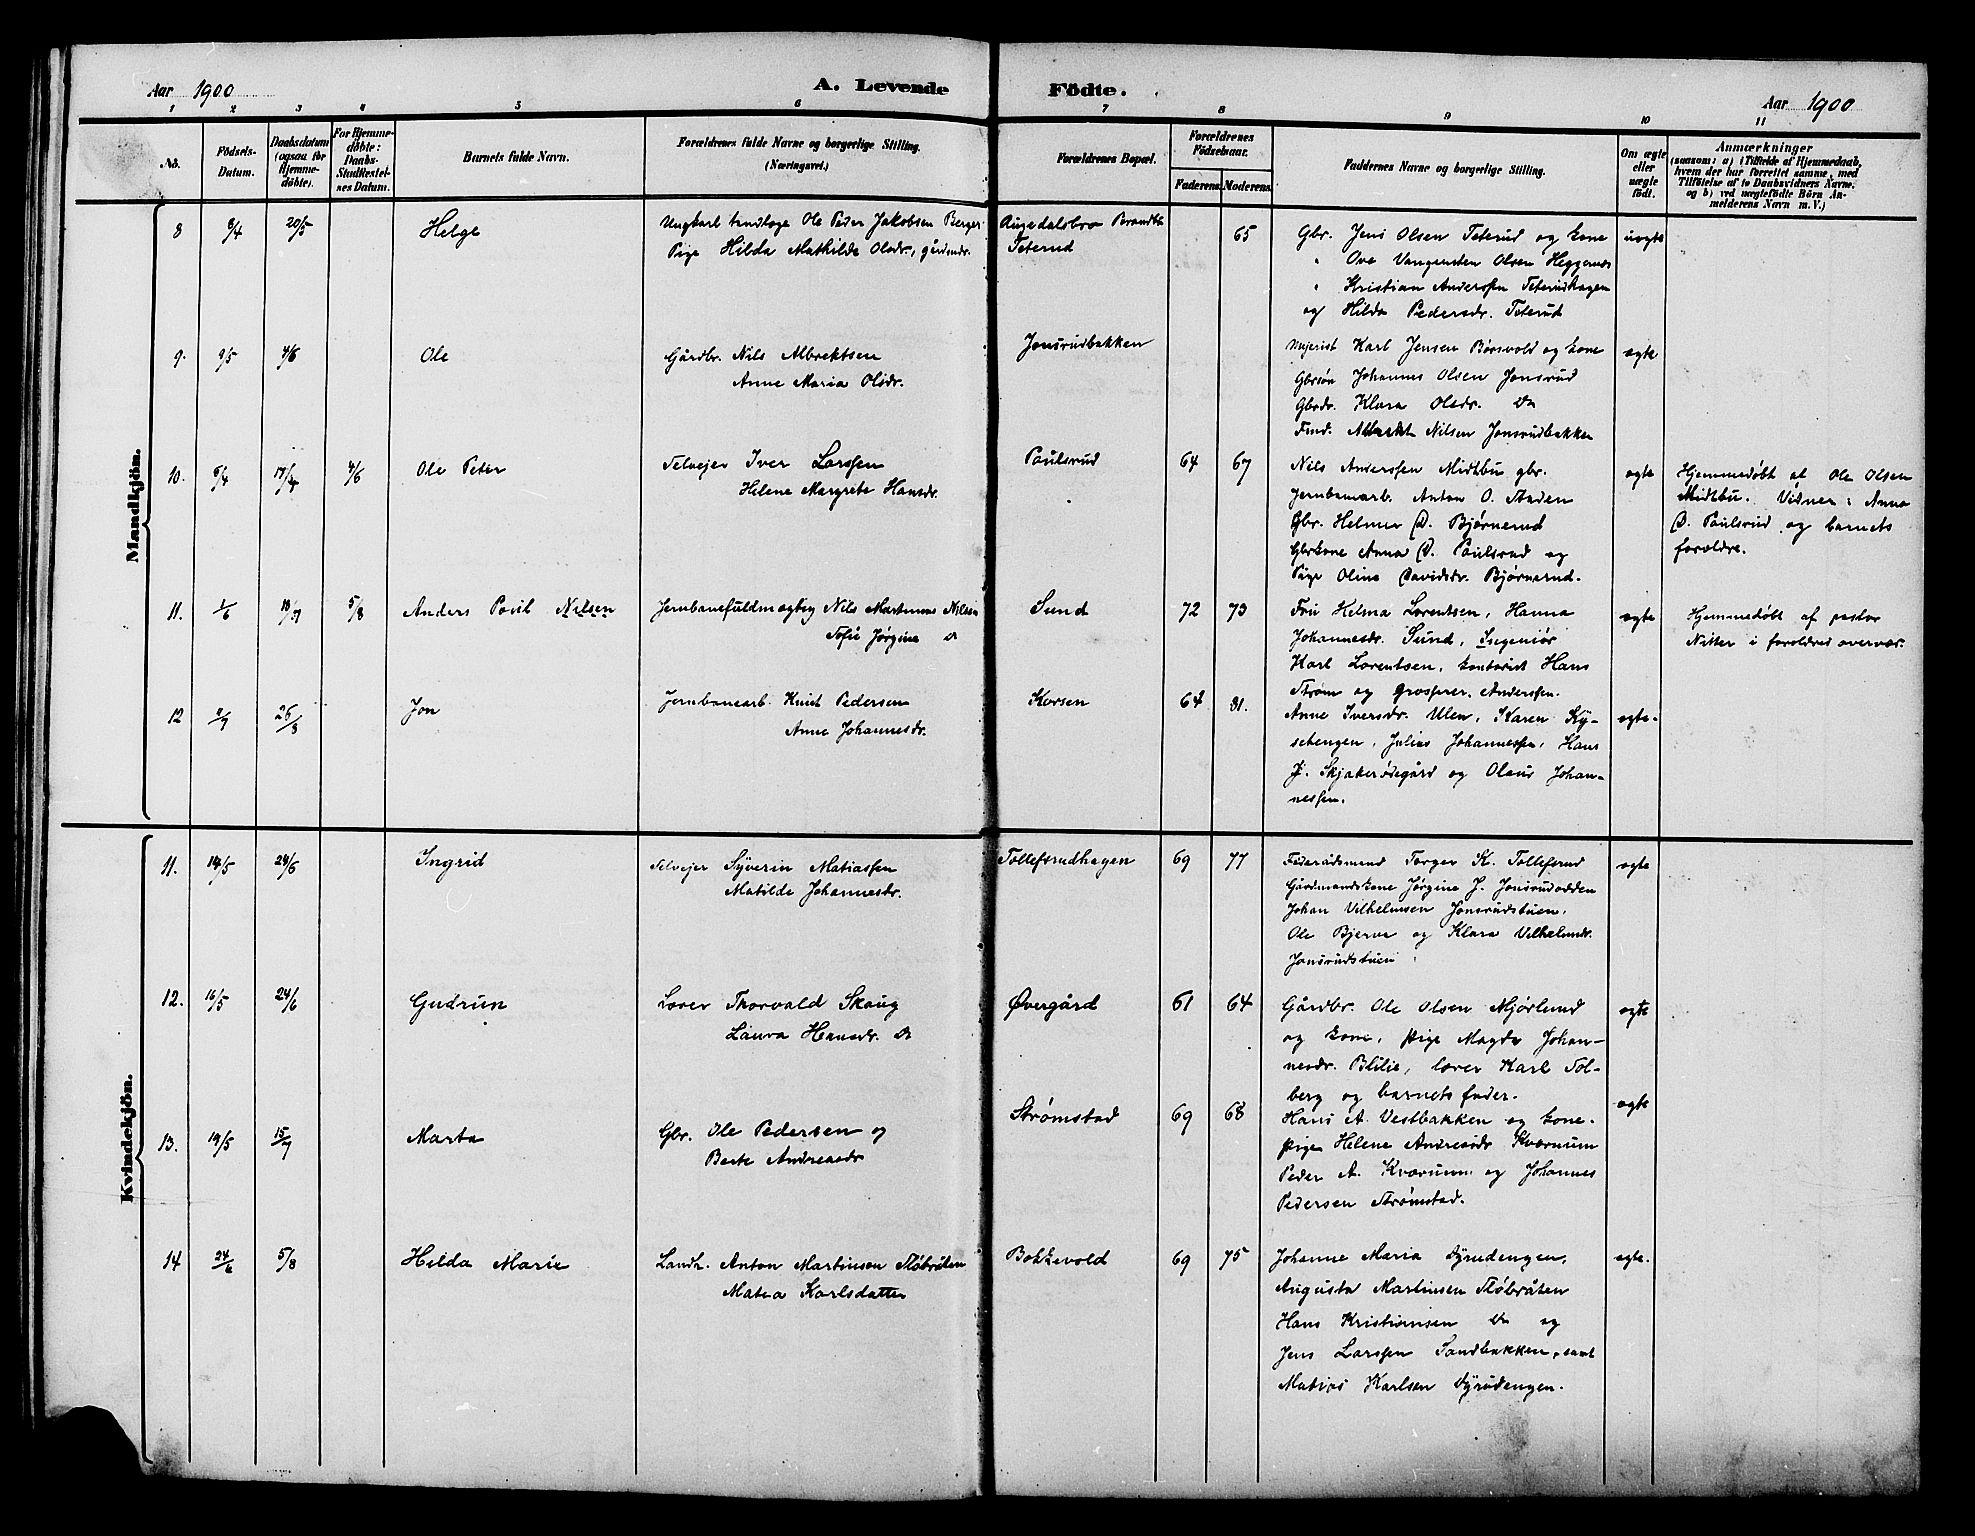 Aar 1900
A. Levende
Födte.
Aar 1900
1 2 3 4 5 6 7 8 9 10 11
No.
Födsels-Datum.
Daabsdatum (ogsaa for Hjemme-döbte).
For Hjemme-döbte: Daabs-Stadfæstel-nes Datum.
Barnets fulde Navn.
Forældrenes fulde Navne og borgerlige Stilling.
(Næringsvei.)
Forældrenes Bopæl.
Forældrenes Födselsaar.
Faderens. Moderens.
Faddernes Navne og borgerlige Stilling.
Om ægte eller uægte födt.
Anmærkninger
(saasom: a) i Tilfælde af Hjemmedaab,
hvem der har forrettet samme, med
Tilföielse af to Daabsvidners Navne,
og b) ved uægtefödte Börn An-
melderens Navn m. V.)
Mandkjön.
8 8/4 20/5 Helge
Ungkarl Ole Peder Jakobsen Berger
Pige Hilda Mathilde Olsdr., gårdmdr.
Teterud
65
Gbr. Jens Olsen Teterud og kone
" Ove Vangensten Olsen Heggenes
" Kristian Anderssen Teterudhagen
og Hilda Pedersdr. Teterud
uægte
9. 9/5 4/6 Ole
Gårdbr. Nils Albrektsen
Anne Maria Olsdr.
Jonsrudbakken
Karl Jensen Børsvold og kone
Gbrsøn Johannes Olsen Jonsrud
Gbrdr. Klara Olsdr. Do
Albrekt Nilsen Jonsrudbakken
ægte
10. 17/4 4/6 Ole Peter
Selvejer Iver Larssen
Helene Margrete Hansdr.
Paulsrud
64 67
Nils Anderssen Midtbu gbr.
Jernbanearb. Anton O. Anden
Gbr. Helmer D. Bjørnerud
Gbrkone Anna D. Paulsrud og
Pige Oline Davidsdr. Bjørnerud.
ægte
Hjemmedøbt af Ole Olsen
Midtbu. Vidner: Anna
D. Paulsrud og barnets
forældre.
11. 1/6 5/8 Anders Povil Nilsen
Jernbanefuldmægtig Nils Martinus Nilsen
Sofie Jørgine
Sund
72 73
Fru Helma Lorentsen, Hanna
Johannesdr. Sund, Ingeniør
Karl Lorentsen, kontorist Hans
Strøm og grosserer Anderssen.
ægte
Hjemmedøbt af pastor
Nitter i forældres overvær.
12 26/8 Jon
Jernbanearb. Knut Pedersen
Anne Johannesdr.
Korsen
64 81.
Anne Iversdr. Ulen, Karen Ky-
sehengen, Julius Johannessen, Hans
J. Skjakerødegård og Olaus Johan-
nessen.
ægte.
Kvindekjön.
11. 14/5 24/6 Ingrid
Selvejer Syverin Matiassen
Matilde Johannesdr.
Tollefsrudhagen
69 77
Føderådsmand Torger K. Tollefsrud
Gårdmandskone Jørgine J. Jonsrudodden
Johan Vilhelmsen Jonsrudstuen,
Ole Bjerva og Klara Vilhelmsdr.
Jonsrudstuen
ægte
12. 16/5 24/6 Gudrun
Lærer Thorvald Skaug
Laura Hansdr.
Øvergård
61 64
Gårdbr. Ole Olsen Mjørlund
og kone, pige Magda Johan-
nesdr. Blilie, lærer Karl Tol-
berg og barnets fader.
ægte
13. 19/5 15/7 Marta
Gbr. Ole Pedersen og
Berte Andreasdr
Strømstad
69 68
Hans A. Vestbakken og kone.
pige Helene Andreasdr Kværnum
Peder A. Kværnum og Johannes
Pedersen Strømstad.
ægte
14 24/6 5/8 Hilda Marie
Landh. Anton Martinsen Fløbråten
Matea Karlsdatter
Bokkevold
69 75
Johanne Maria Dyrudengen,
Augusta Martinsen Fløbråten
Hans Kristiansen Do og
Jens Larssen Sandbakken, samt
Matias Karlsen Dyrudengen.
ægte.